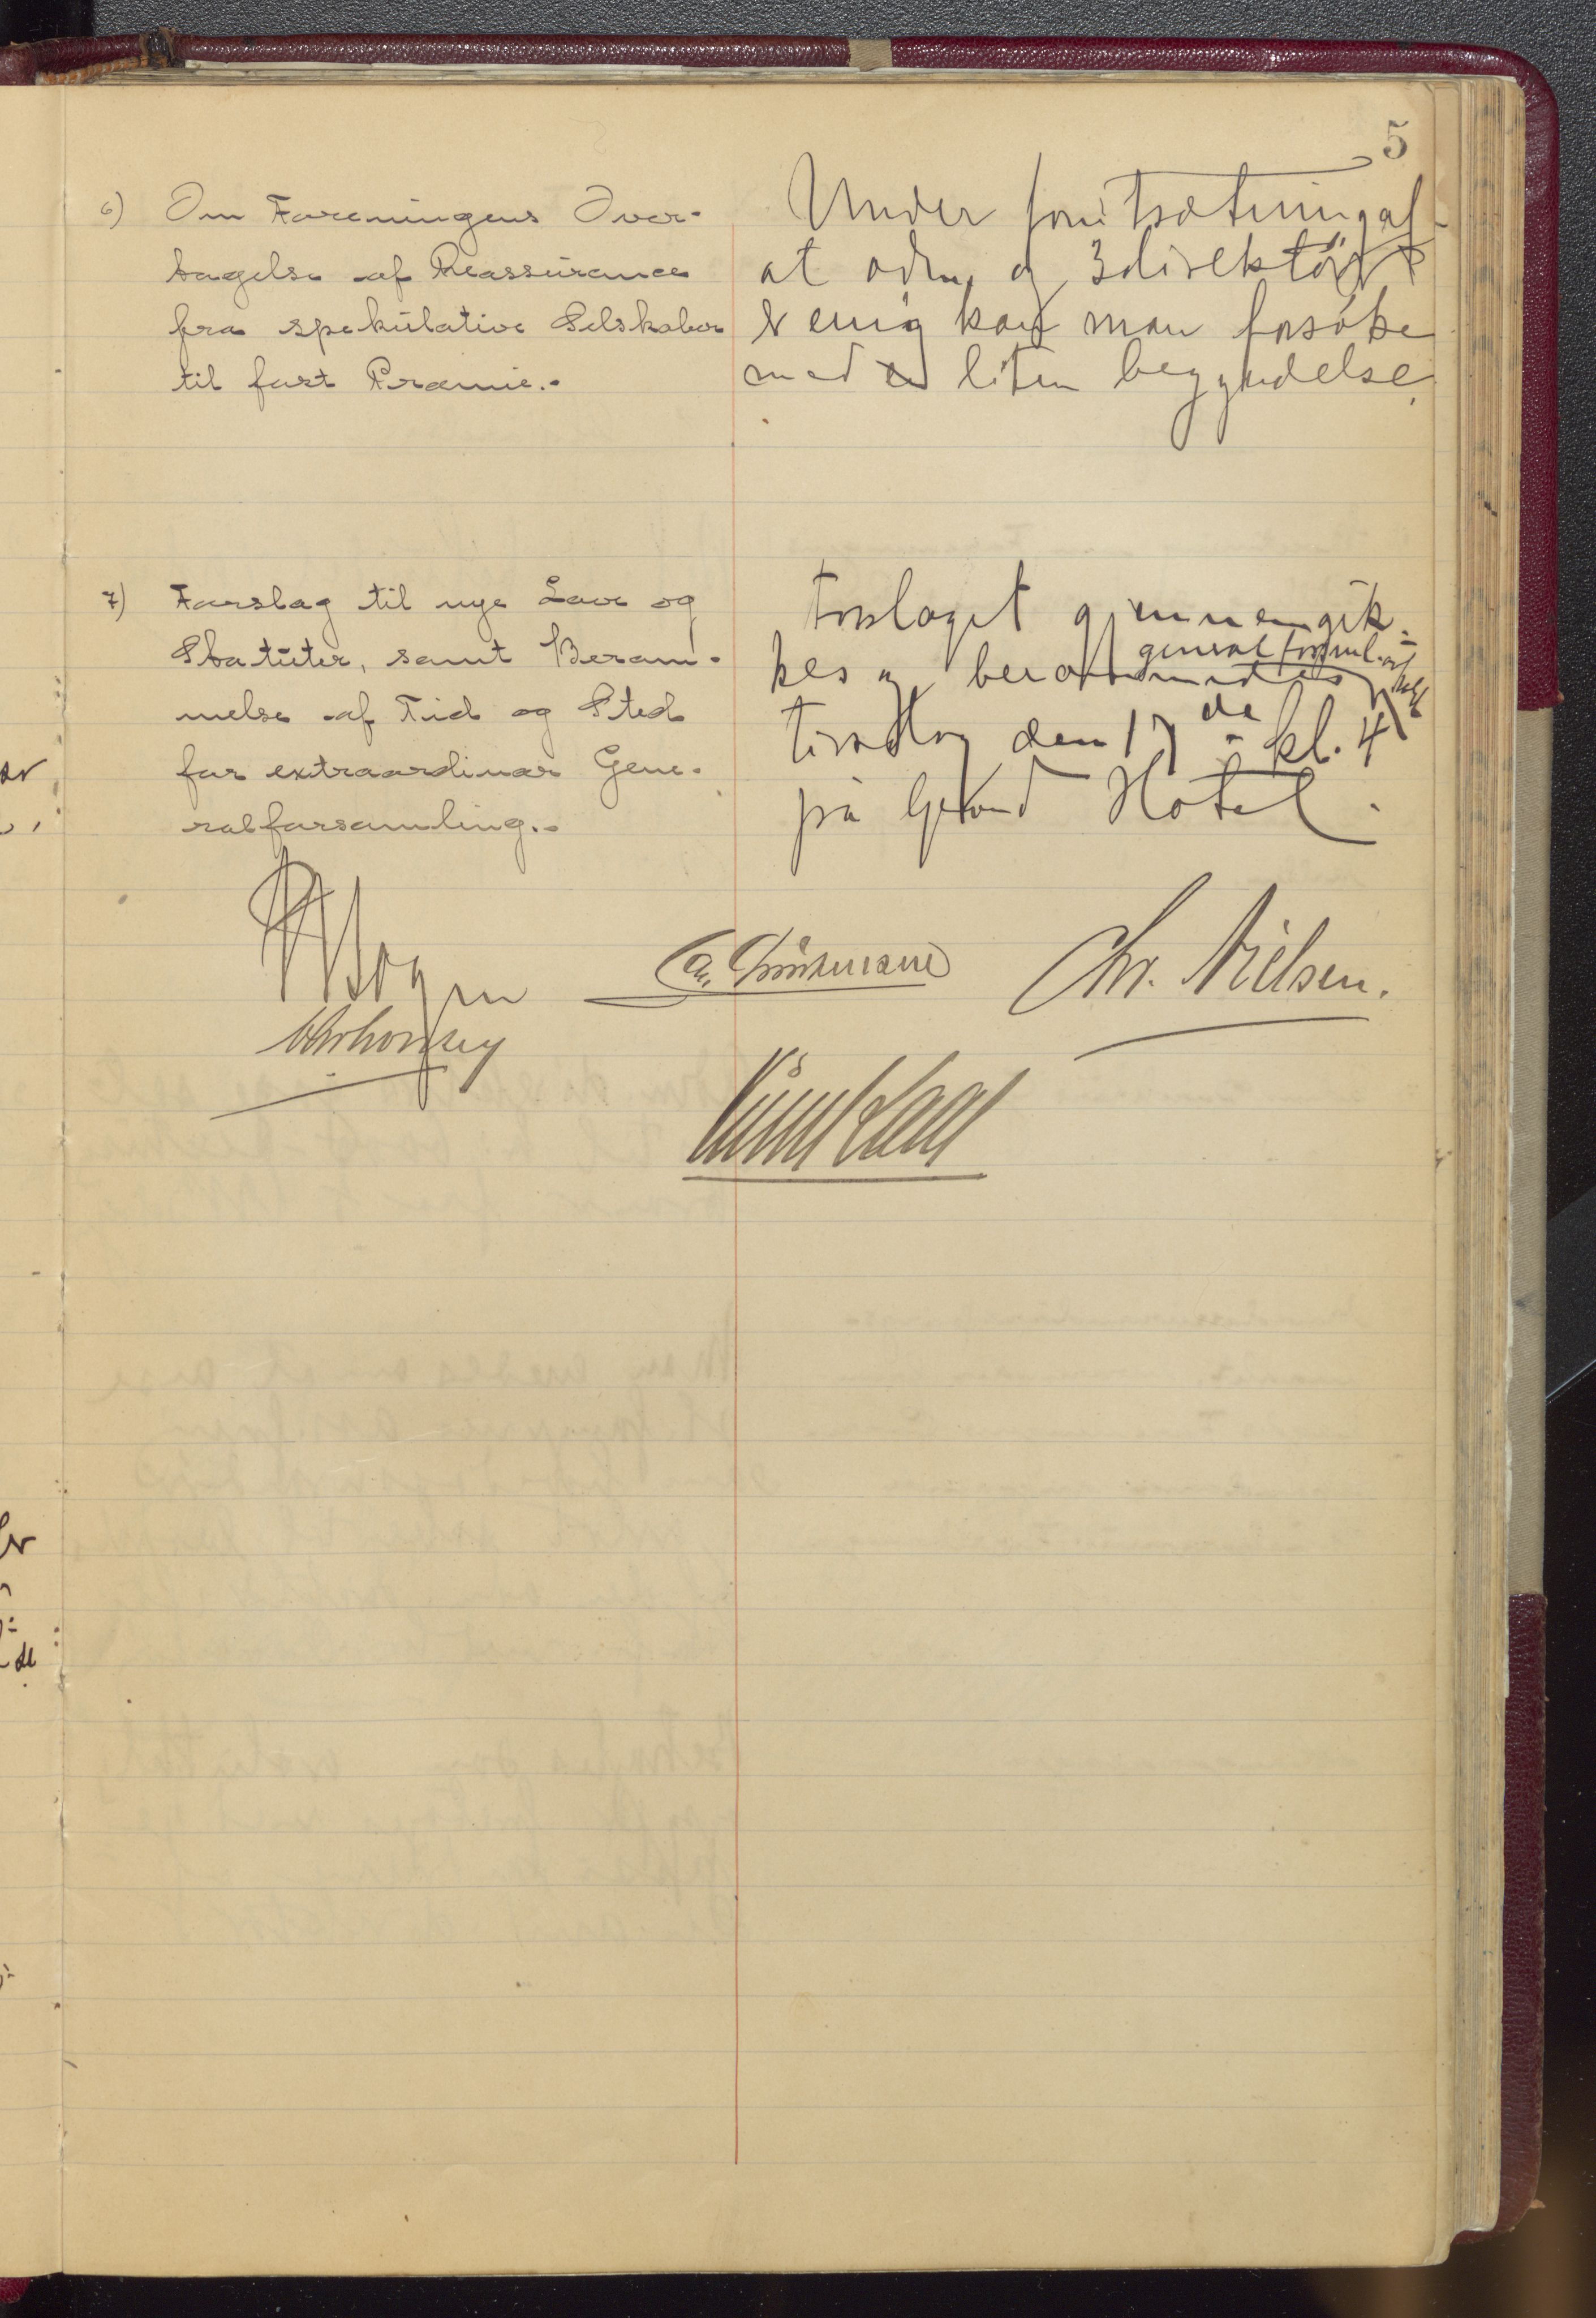 5
6) Om Foreningens Over-
tagelse af Reassurance
fra spekulative Selskaber
til fast Præmie.-
Under forutsætning af
at adm. og 3 direktører
er enig kan man forsøke
med en liten begyndelse.
7) Forslag til nye Love og
Statuter, samt Beram-
melse af Tid og Sted
for extraordinær Gene-
ralforsamling.-
Forslaget gjennemgik-
kes og berammedes generalforsml.
tirsdag den 17 de kl. 4
på Grand Hotel.
Chr. Nielsen.